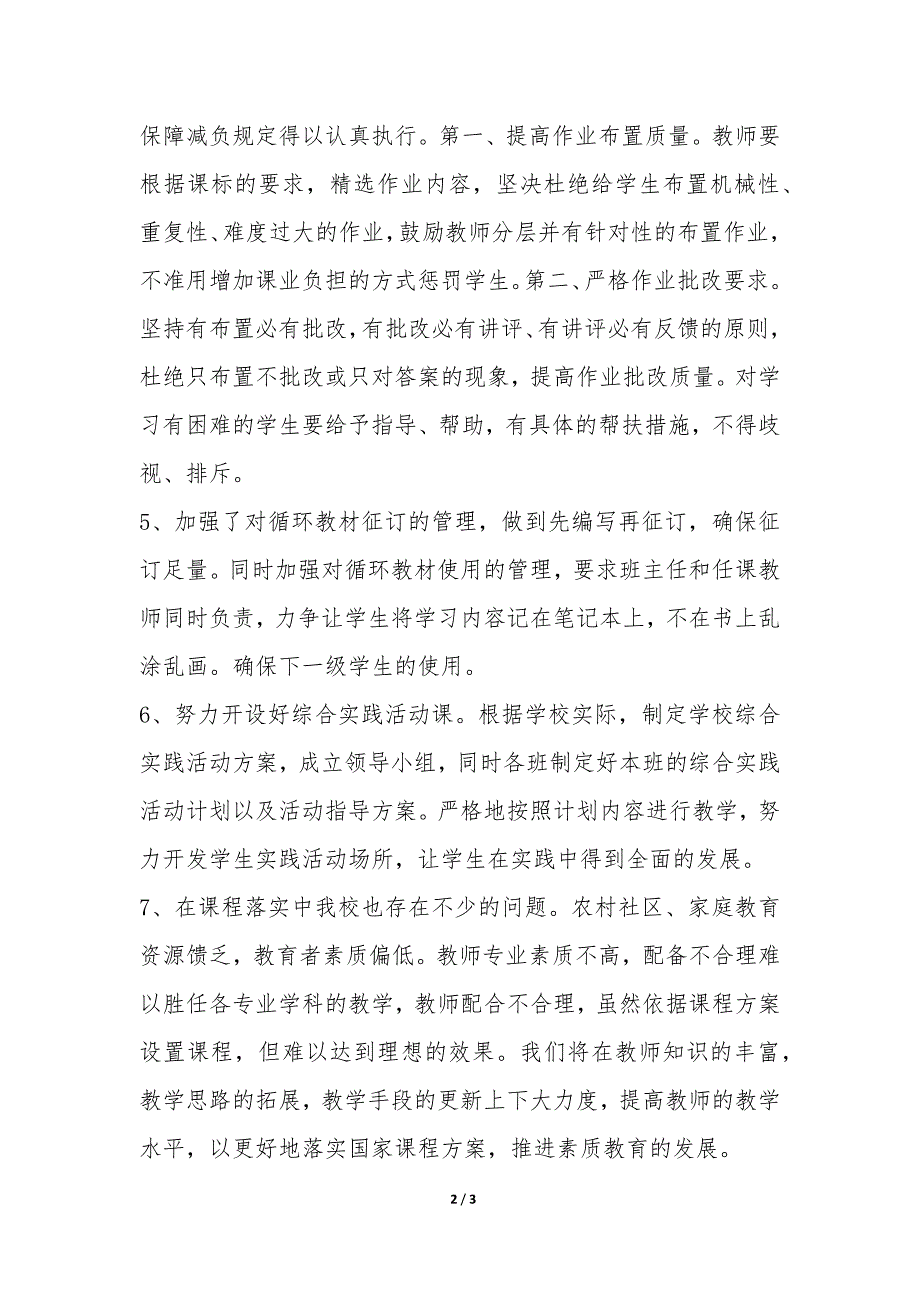 保障减负规定得以认真执行。第一、提高作业布置质量。教师要
根据课标的要求，精选作业内容，坚决杜绝给学生布置机械性、
重复性、难度过大的作业，鼓励教师分层并有针对性的布置作业，
不准用增加课业负担的方式惩罚学生。第二、严格作业批改要求。
坚持有布置必有批改，有批改必有讲评、有讲评必有反馈的原则，
杜绝只布置不批改或只对答案的现象，提高作业批改质量。对学
习有困难的学生要给予指导、帮助，有具体的帮扶措施，不得歧
视、排斥。
5、加强了对循环教材征订的管理，做到先编写再征订，确保征
订足量。同时加强对循环教材使用的管理，要求班主任和任课教
师同时负责，力争让学生将学习内容记在笔记本上，不在书上乱
涂乱画。确保下一级学生的使用。
6、努力开设好综合实践活动课。根据学校实际，制定学校综合
实践活动方案，成立领导小组，同时各班制定好本班的综合实践
活动计划以及活动指导方案。严格地按照计划内容进行教学，努
力开发学生实践活动场所，让学生在实践中得到全面的发展。
7、在课程落实中我校也存在不少的问题。农村社区、家庭教育
资源馈乏，教育者素质偏低。教师专业素质不高，配备不合理难
以胜任各专业学科的教学，教师配合不合理，虽然依据课程方案
设置课程，但难以达到理想的效果。我们将在教师知识的丰富，
教学思路的拓展，教学手段的更新上下大力度，提高教师的教学
水平，以更好地落实国家课程方案，推进素质教育的发展。
2 / 3